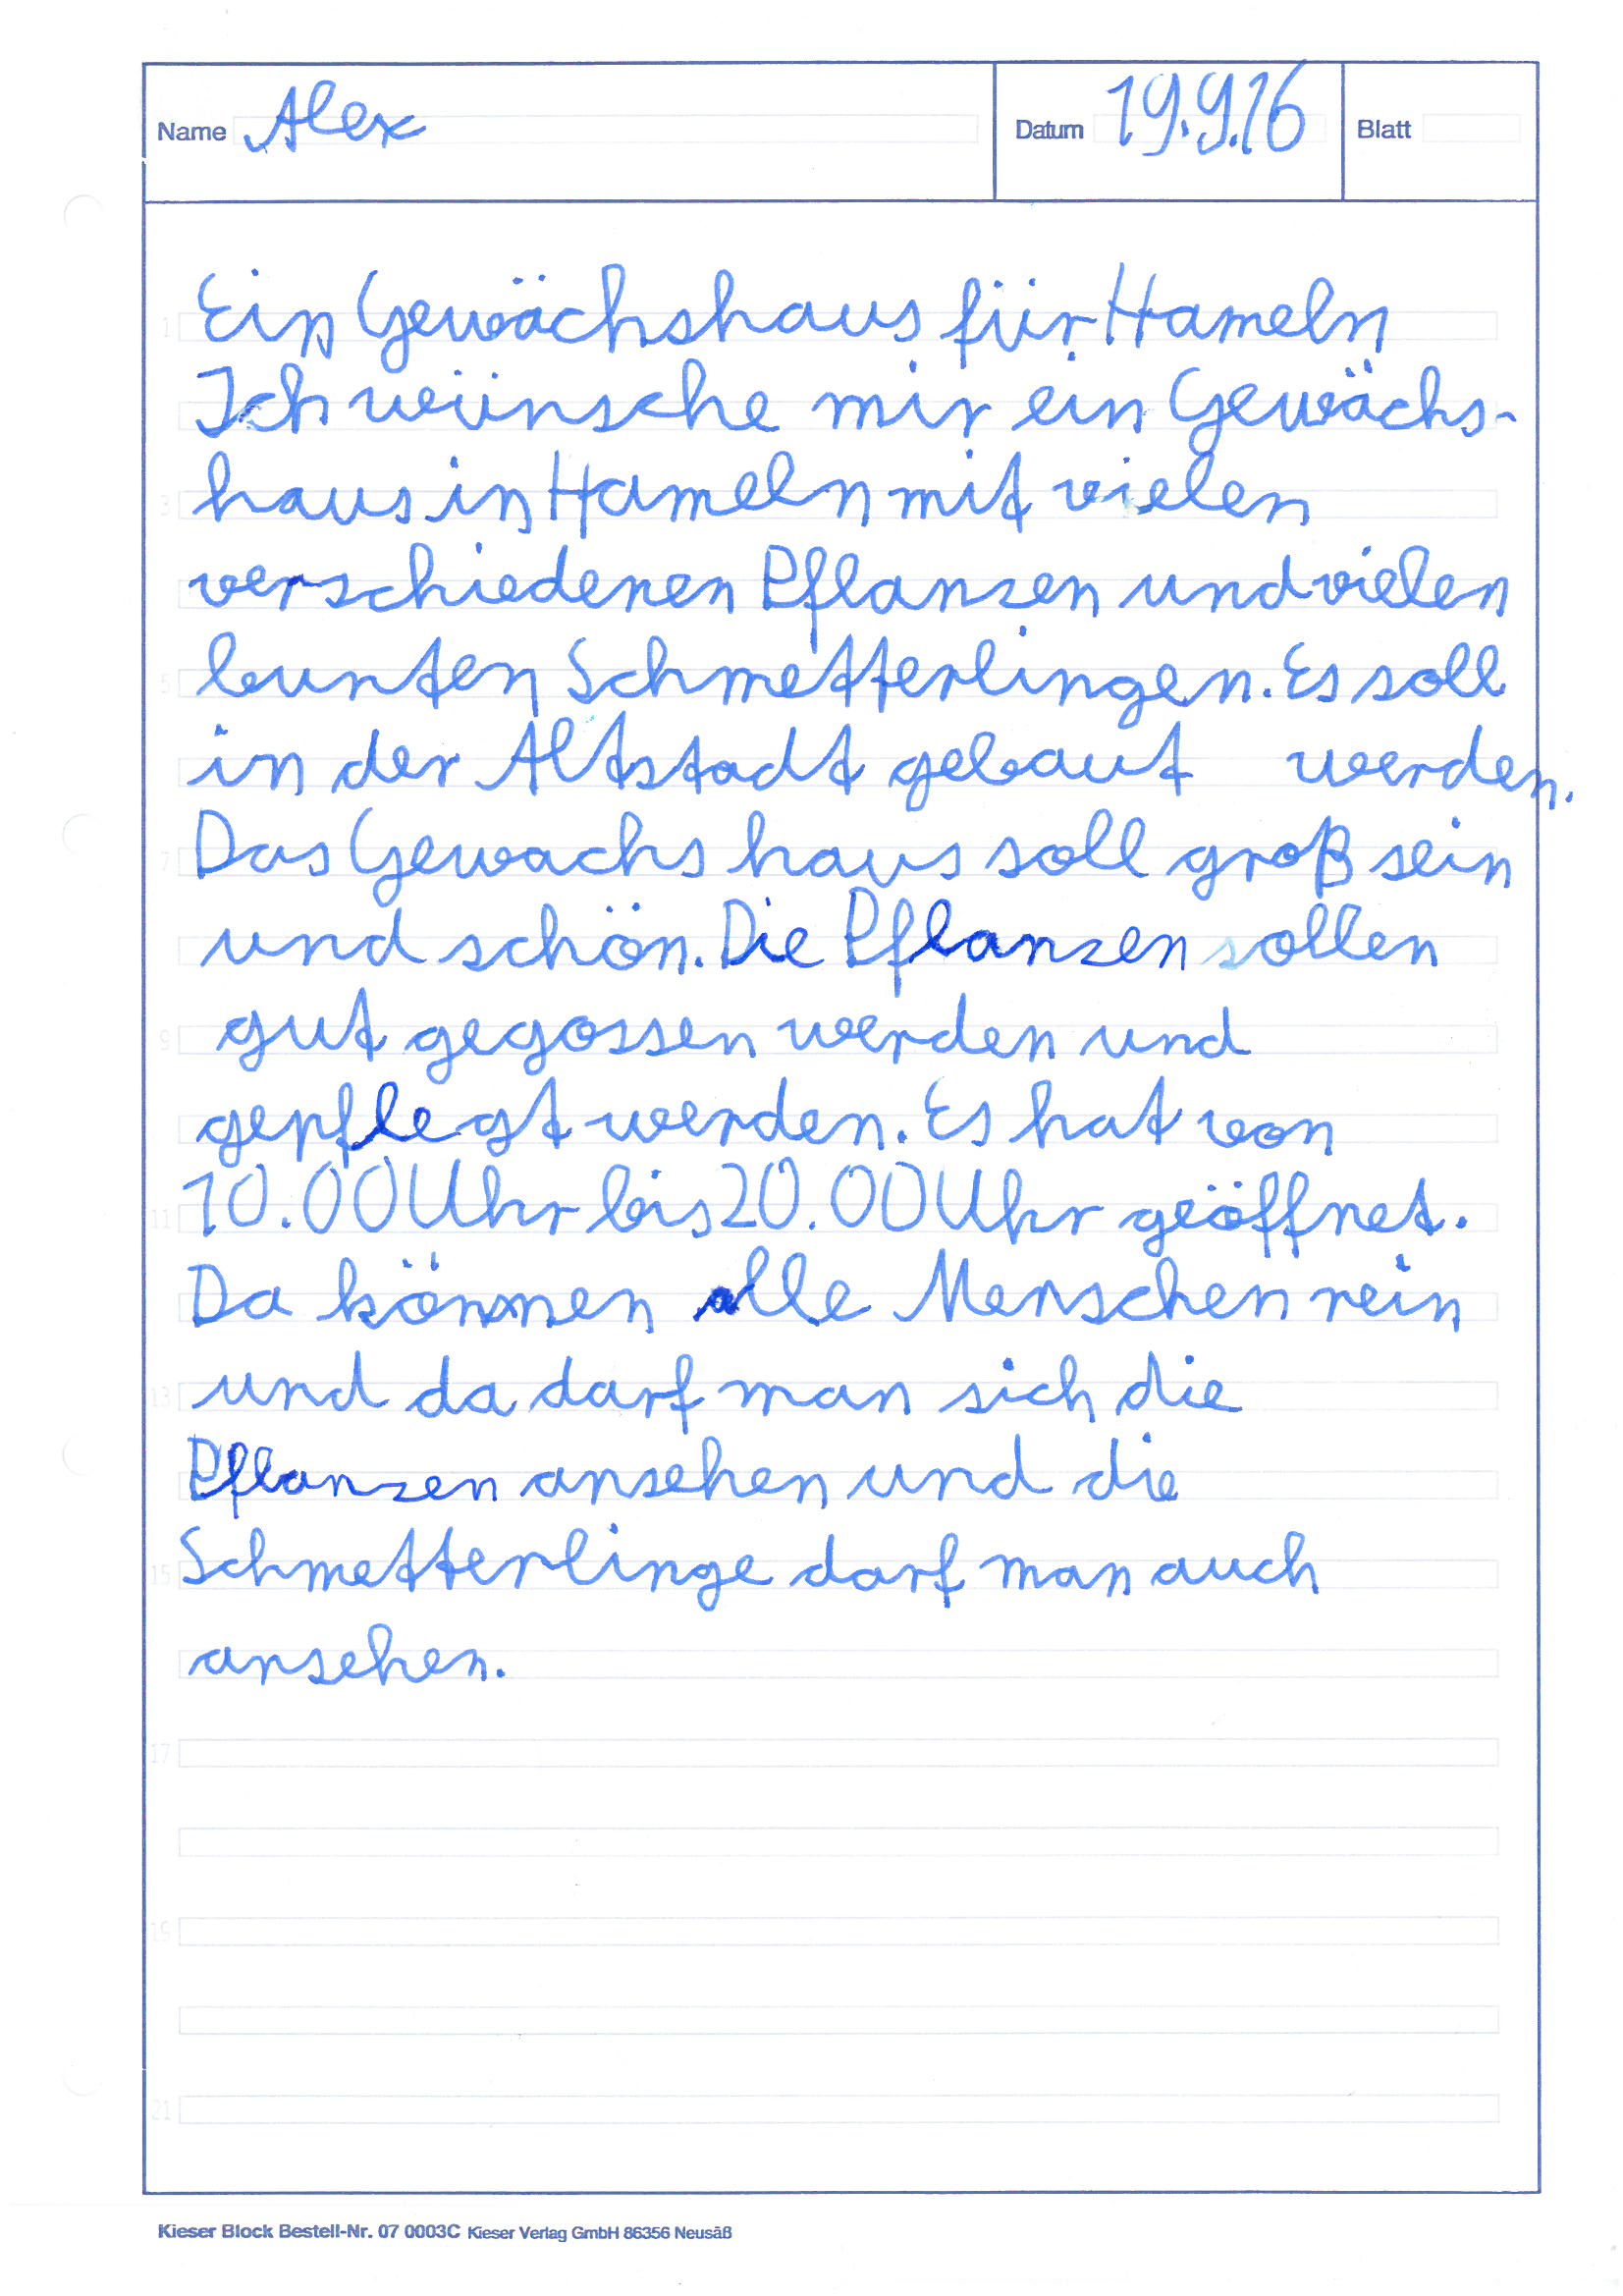 Name Alex Datum 19.9.16 Blatt
1 Ein Gewächshaus für Hameln
Ich wünsche mir ein Gewächs-
3 haus in Hameln mit vielen
verschiedenen Pflanzen und vielen
5 bunten Schmetterlingen. Es soll
in der Altstadt gebaut werden.
7 Das Gewachshaus soll groß sein
und schön. Die Pflanzen sollen
9 gut gegossen werden und
gepflegt werden. Es hat von
11 10.00 Uhr bis 20.00 Uhr geöffnet.
Da können alle Menschen rein
13 und da darf man sich die
Pflanzen ansehen und die
15 Schmetterlinge darf man auch
ansehen.
17
19
21
Kieser Block Bestell-Nr. 07 0003C Kieser Verlag GmbH 86356 Neusäß